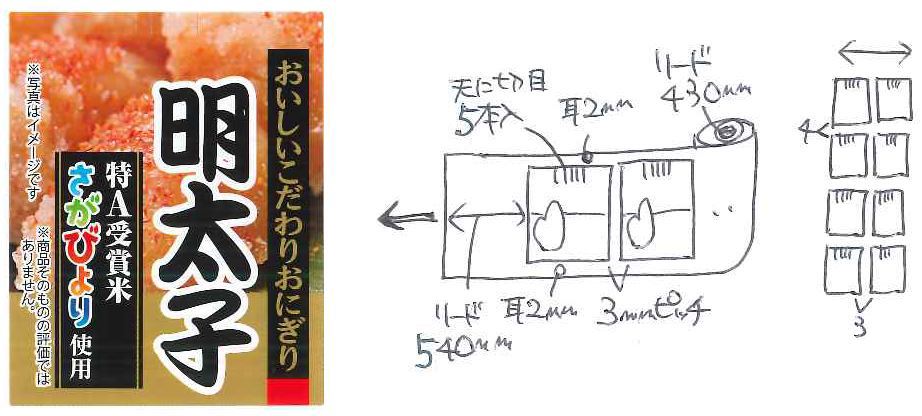 おいしいこだわりおにぎり
明太子
特A受賞米
さがびより
使用
※写真はイメージです
※商品そのものの評価では
ありません。
天に切り目
5本入
耳2mm
リード
430mm
リード
540mm
耳2mm
3mmピッチ
4
3